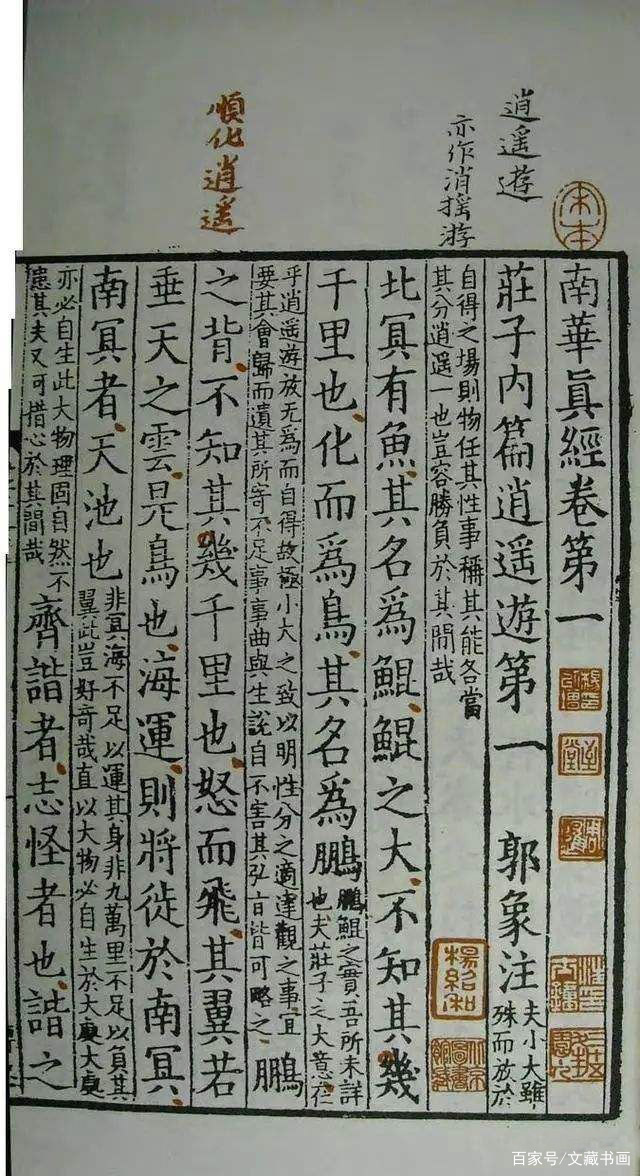 宋本
逍遥遊
亦作消揺游
順化逍遥
南華眞經卷第一
莊子内篇逍遥遊第一 郭象注 夫小大雖
殊而放於
自得之場則物任其性事稱其能各當
其分逍遥一也豈容勝負於其間哉
楊紹和
北冥有魚其名爲鯤鯤之大不知其幾
千里也化而爲鳥其名爲鵬 鵬鯤之實吾所未詳
也夫莊子之大意在
乎逍遥遊放无爲而自得故極小大之致以明性分之適達觀之事宜
要其會歸而遺其所寄不足事事曲與生說自不害其弘旨皆可略之 鵬
之背不知其幾千里也怒而飛其翼若
垂天之雲是鳥也海運則將徙於南冥
南冥者天池也 非冥海不足以運其身非九萬里不足以負其
翼此豈好奇哉直以大物必自生於大處大處
亦必自生此大物理固自然不
患其失又可措心於其間哉 齊諧者志怪者也諧之
百家号/文藏书画